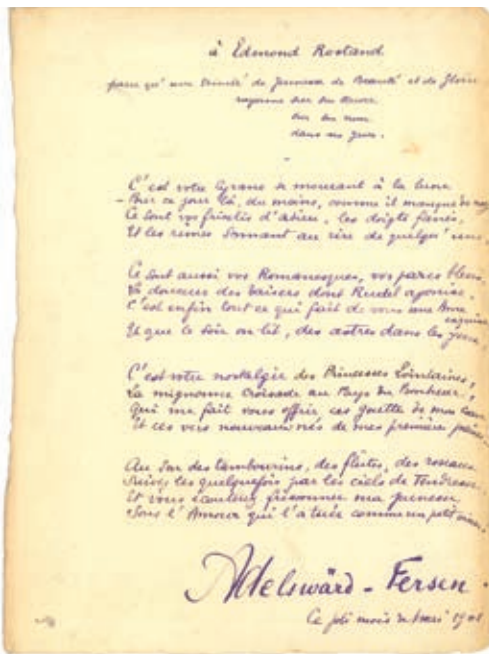 à Edmond Rostand
parce qu'une trinité de Jeunesse de Beauté et de Gloire
rayonne sur son œuvre
sur son nom
dans ses yeux.
C'est votre Cyrano se mourant à la lune
Ce sont vos frisélis d'acier, les doigts fanés,
Et les rimes sonnant au rire de quelqu'une,
Ce sont aussi vos Romanesques, vos parcs bleus,
La douceur des baisers dont Rudel agonise,
C'est enfin tout ce qui fait de vous une âme exquise
Et que le soir on lit, des astres dans les yeux,
C'est votre nostalgie des Princesses Lointaines,
La mignonne Croisade au Pays du Bonheur,
Qui me fait vous offrir ces gouttes de mon cœur
Et ces vers nouveaux nés de mes premières peines
Au son des tambourins, des flûtes, des roseaux
Suivez les quelquefois par les ciels de Tendresse
Et vous écoutez frissonner ma jeunesse
Sous l'Amour qui l'a tuée comme un petit oiseau.
Adelswärd - Fersen
Ce joli mois de Mai 1901